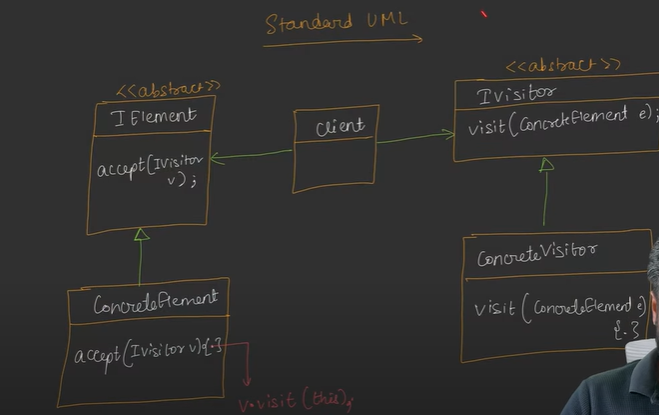 Standard UML
<<abstract>>
IElement
accept(IVisitor
v);
Client
<<abstract>>
IVisitor
visit(ConcreteElement e);
ConcreteElement
accept(IVisitor v){.}
v.visit(this);
ConcreteVisitor
visit(ConcreteElement e)
{.}